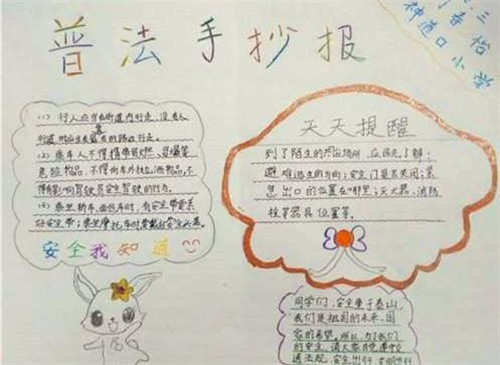 普法手抄报
三
春怡
神道口小学
(1) 行人应当在街道内行走,没有人
行道时应当靠最右的路边行走。
(2) 乘车人不得携带易燃、易爆等
危险物品,不得向车外抛洒物品,不
得有影响驾驶员安全驾驶的行为。
(3) 乘坐轿车、面包车时,有安全带要系
好安全带;乘坐摩托车时要戴好安全头盔。
安全我知道
天天提醒
到了陌生的 场所,应该先了解:
避难逃生的方向;安全门是否关闭;紧
急出口的位置在哪里;灭火器、消防
栓等器具位置等。
同学们,安全重于泰山,
我们是祖国的未来,国
家的希望。所以,为了我们
的安全,请大家自觉遵守交
通法规,安全出行